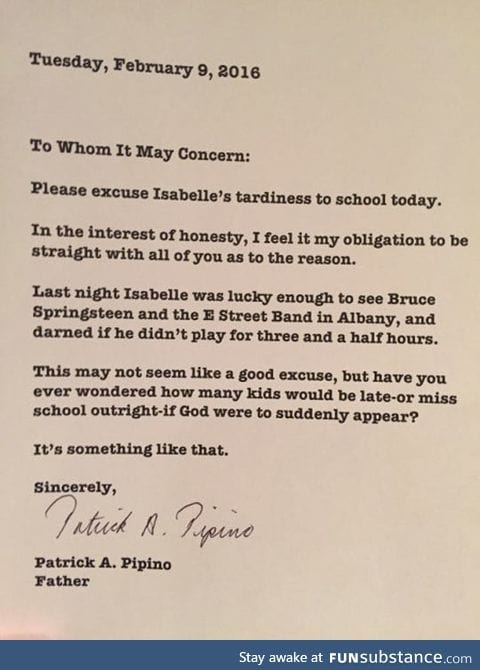 Tuesday, February 9, 2016
To Whom It May Concern:
Please excuse Isabelle's tardiness to school today.
In the interest of honesty, I feel it my obligation to be
straight with all of you as to the reason.
Last night Isabelle was lucky enough to see Bruce
Springsteen and the E Street Band in Albany, and
darned if he didn't play for three and a half hours.
This may not seem like a good excuse, but have you
ever wondered how many kids would be late-or miss
school outright-if God were to suddenly appear?
It's something like that.
Sincerely,
Patrick A. Pipino
Patrick A. Pipino
Father
Stay awake at FUNsubstance.com